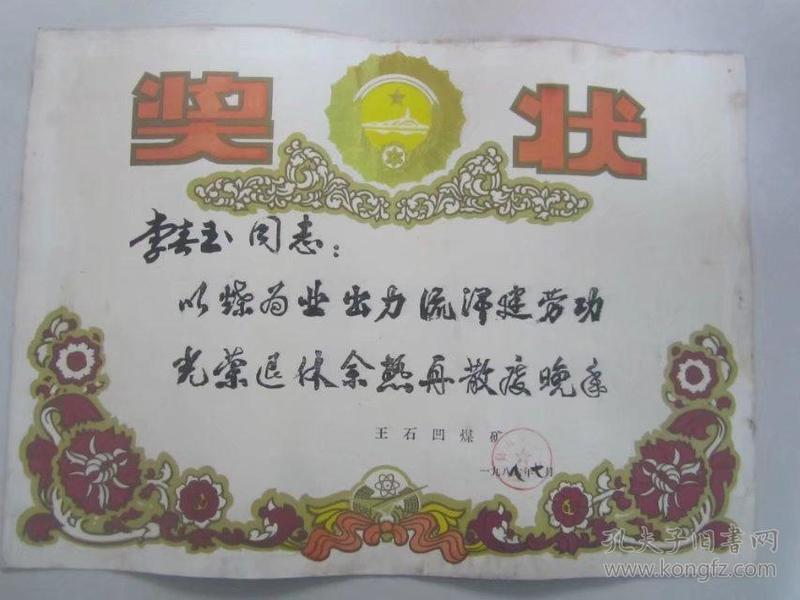 奖状
李春玉同志：
以煤为业出力流汗建劳功
光荣退休余热再散度晚年
王石凹煤矿
一九八八年七月
孔夫子旧书网
www.kongfz.com